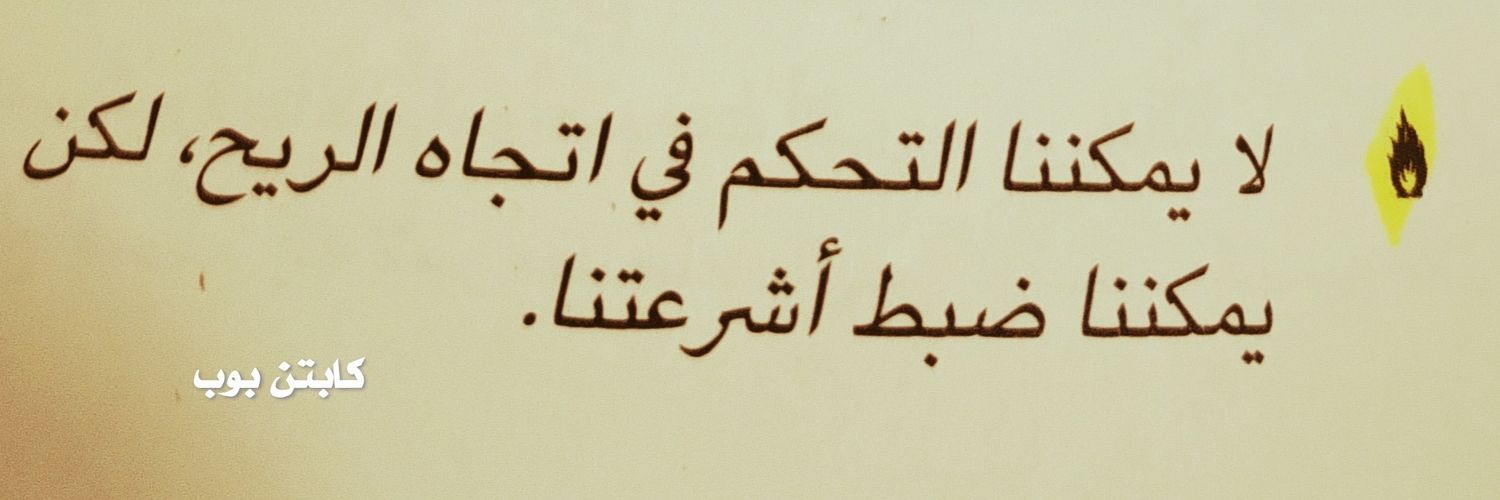 لا يمكننا التحكم في اتجاه الريح، لكن
يمكننا ضبط أشرعتنا.
كابتن بوب